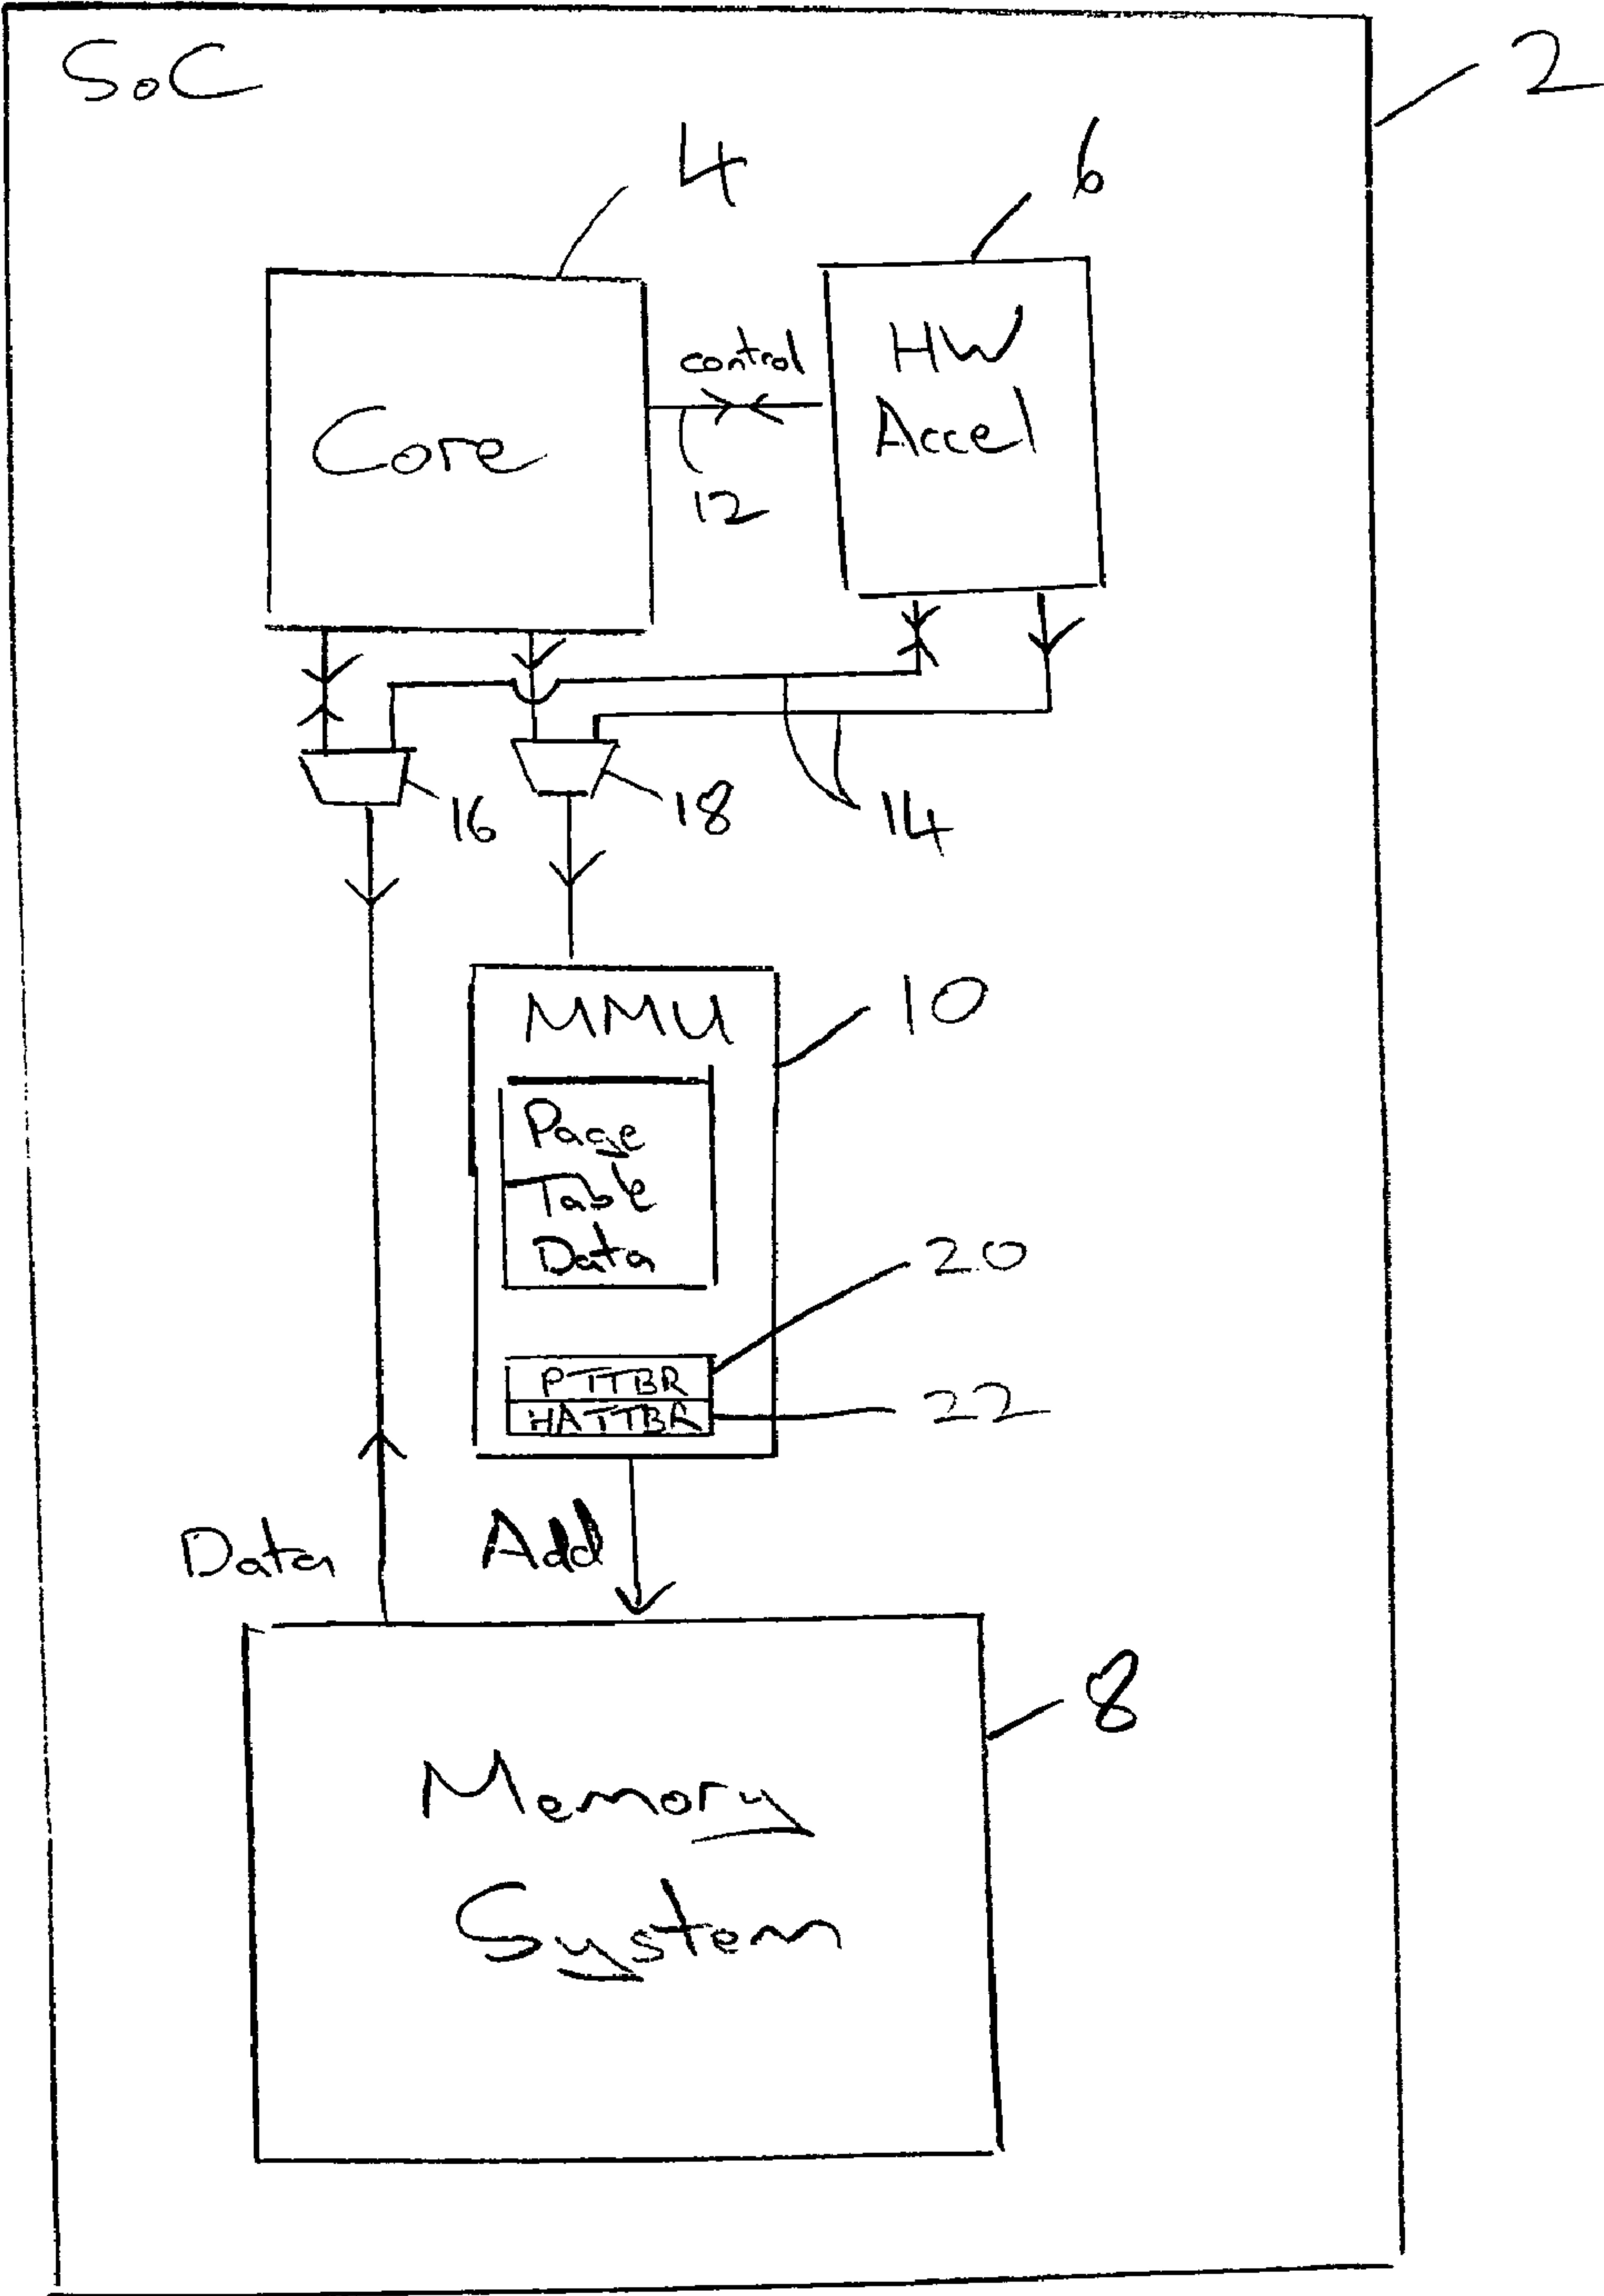 SoC
2
4
6
Core
control
12
HW
Accel
16
18
14
MMU
10
Page
Table
Data
20
PTTBR
22
HATTBR
Data
Add
8
Memory
System